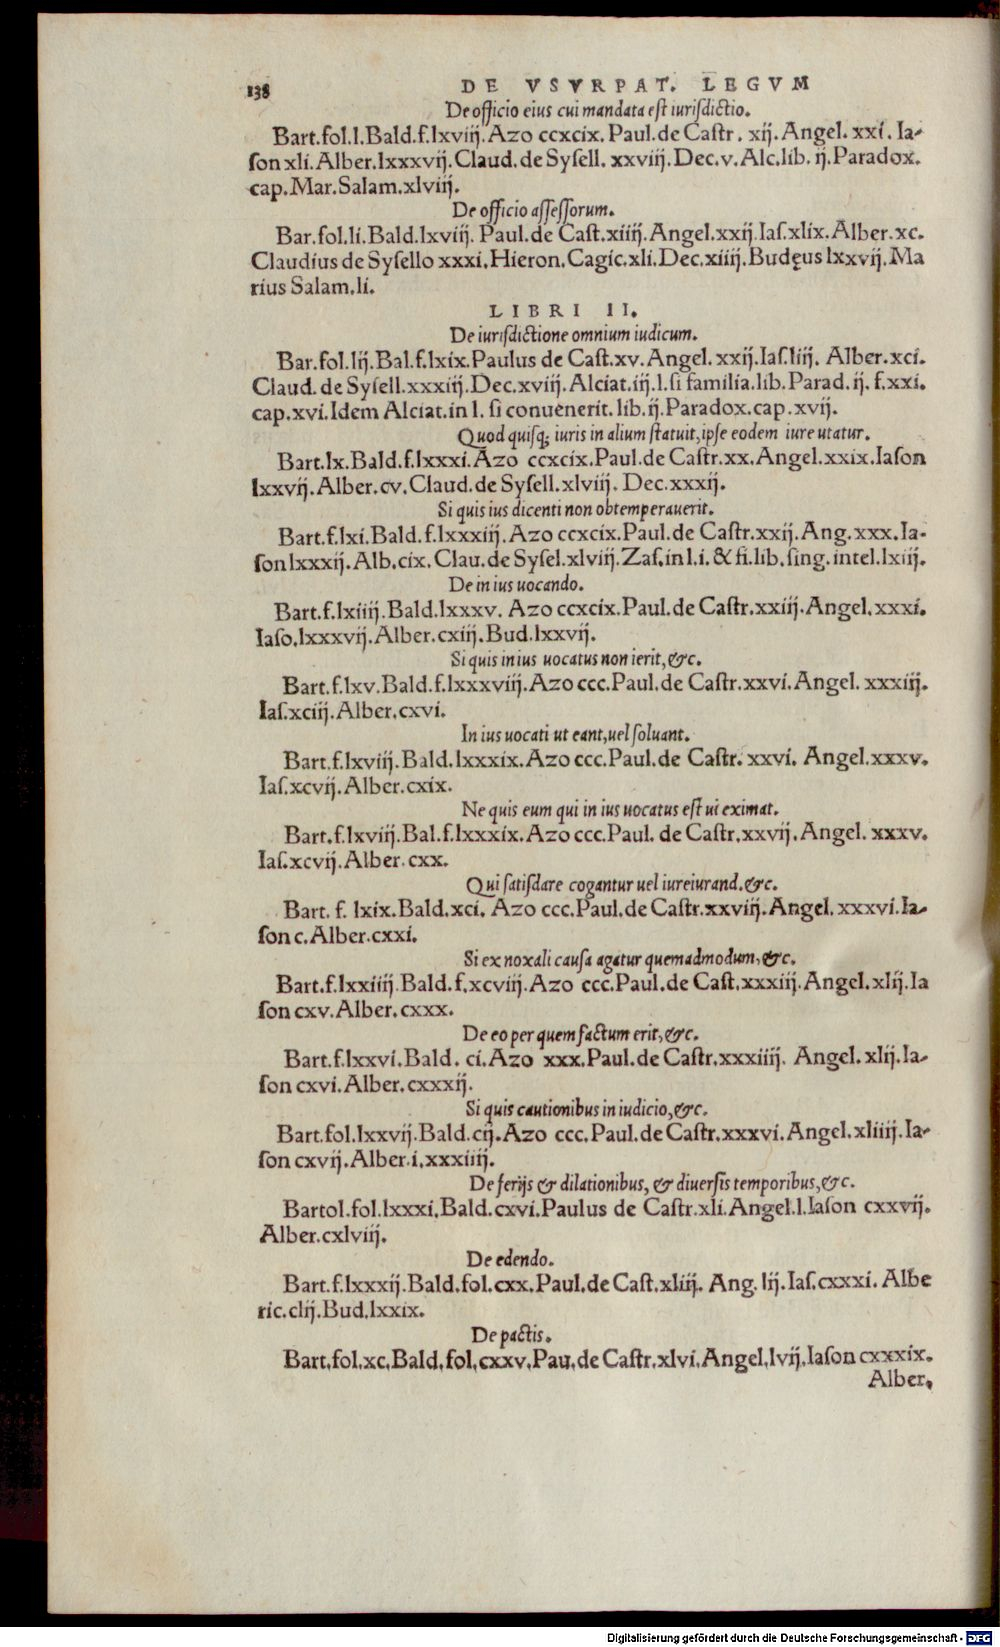 138 DE VSVRPAT. LEGVM
De officio eius cui mandata est iurisdictio.
Bart.fol.l.Bald.f.lxviij.Azo ccxcix.Paul.de Castr. xij.Angel. xxi. Ia-
son xli.Alber.lxxxvij.Claud.de Sysell. xxviij.Dec.v.Alc.lib. ij.Paradox.
cap.Mar.Salam.xlviij.
De officio assessorum.
Bar.fol.li.Bald.lxviij. Paul.de Cast.xiiij.Angel.xxij.Ias.xlix.Alber.xc.
Claudius de Sysello xxxi.Hieron.Cagic.xli.Dec.xiiij.Budęus lxxvij.Ma
rius Salam.li.
LIBRI II.
De iurisdictione omnium iudicum.
Bar.fol.lij.Bal.f.lxix.Paulus de Cast.xv.Angel.xxij.Ias.liij. Alber.xci.
Claud.de Sysell.xxxiij.Dec.xviij.Alciat.iij.l.si familia.lib.Parad.ij. f.xxi.
cap.xvi.Idem Alciat.in l. si conuenerit. lib.ij.Paradox.cap.xvij.
Quod quisq; iuris in alium statuit,ipse eodem iure utatur.
Bart.lx.Bald.f.lxxxi.Azo ccxcix.Paul.de Castr.xx.Angel.xxix.Iason
lxxvij.Alber.cv.Claud.de Sysell.xlviij. Dec.xxxij.
Si quis ius dicenti non obtemperauerit.
Bart.f.lxi.Bald.f.lxxxiij.Azo ccxcix.Paul.de Castr.xxij.Ang.xxx.Ia-
son lxxxij.Alb.cix.Clau.de Sysel.xlviij.Zas.in l.i.& fi.lib.sing.intel.lxiij.
De in ius uocando.
Bart.f.lxiiij.Bald.lxxxv. Azo ccxcix.Paul.de Castr.xxiij.Angel.xxxi.
Iaso.lxxxvij.Alber.cxiij.Bud.lxxvij.
Si quis in ius uocatus non ierit,&c.
Bart.f.lxv.Bald.f.lxxxviij.Azo ccc.Paul.de Castr.xxvi.Angel. xxxiij.
Ias.xciij.Alber.cxvi.
In ius uocati ut eant,uel soluant.
Bart.f.lxviij.Bald.lxxxix.Azo ccc.Paul.de Castr. xxvi. Angel.xxxv.
Ias.xcvij.Alber.cxix.
Ne quis eum qui in ius uocatus est ui eximat.
Bart.f.lxviij.Bal.f.lxxxix.Azo ccc.Paul. de Castr.xxvij.Angel. xxxv.
Ias.xcvij.Alber.cxx.
Qui satisdare cogantur uel iureiurand.&c.
Bart. f. lxix.Bald.xci. Azo ccc.Paul.de Castr.xxviij.Angel. xxxvi.Ia-
son c.Alber.cxxi.
Si ex noxali causa agatur quemadmodum,&c.
Bart.f.lxxiiij.Bald.f.xcviij.Azo ccc.Paul.de Cast.xxxiij.Angel.xlij.Ia
son cxv.Alber.cxxx.
De eo per quem factum erit,&c.
Bart.f.lxxvi.Bald. ci.Azo xxx.Paul.de Castr.xxxiiij. Angel.xlij.Ia-
son cxvi.Alber.cxxxij.
Si quis cautionibus in iudicio,&c.
Bart.fol.lxxvij.Bald.cij.Azo ccc.Paul.de Castr.xxxvi.Angel.xliiij.Ia-
son cxvij.Alber.i.xxxiiij.
De ferijs & dilationibus, & diuersis temporibus,&c.
Bartol.fol.lxxxi.Bald.cxvi.Paulus de Castr.xli.Angel.l.Iason cxxvij.
Alber.cxlviij.
De edendo.
Bart.f.lxxxij.Bald.fol.cxx.Paul.de Cast.xliij. Ang. lij.Ias.cxxxi. Albe
ric.clij.Bud.lxxix.
De pactis.
Bart.fol.xc.Bald.fol.cxxv.Pau.de Castr.xlvi.Angel.lvij.Iason cxxxix.
Alber.
Digitalisierung gefördert durch die Deutsche Forschungsgemeinschaft - DFG